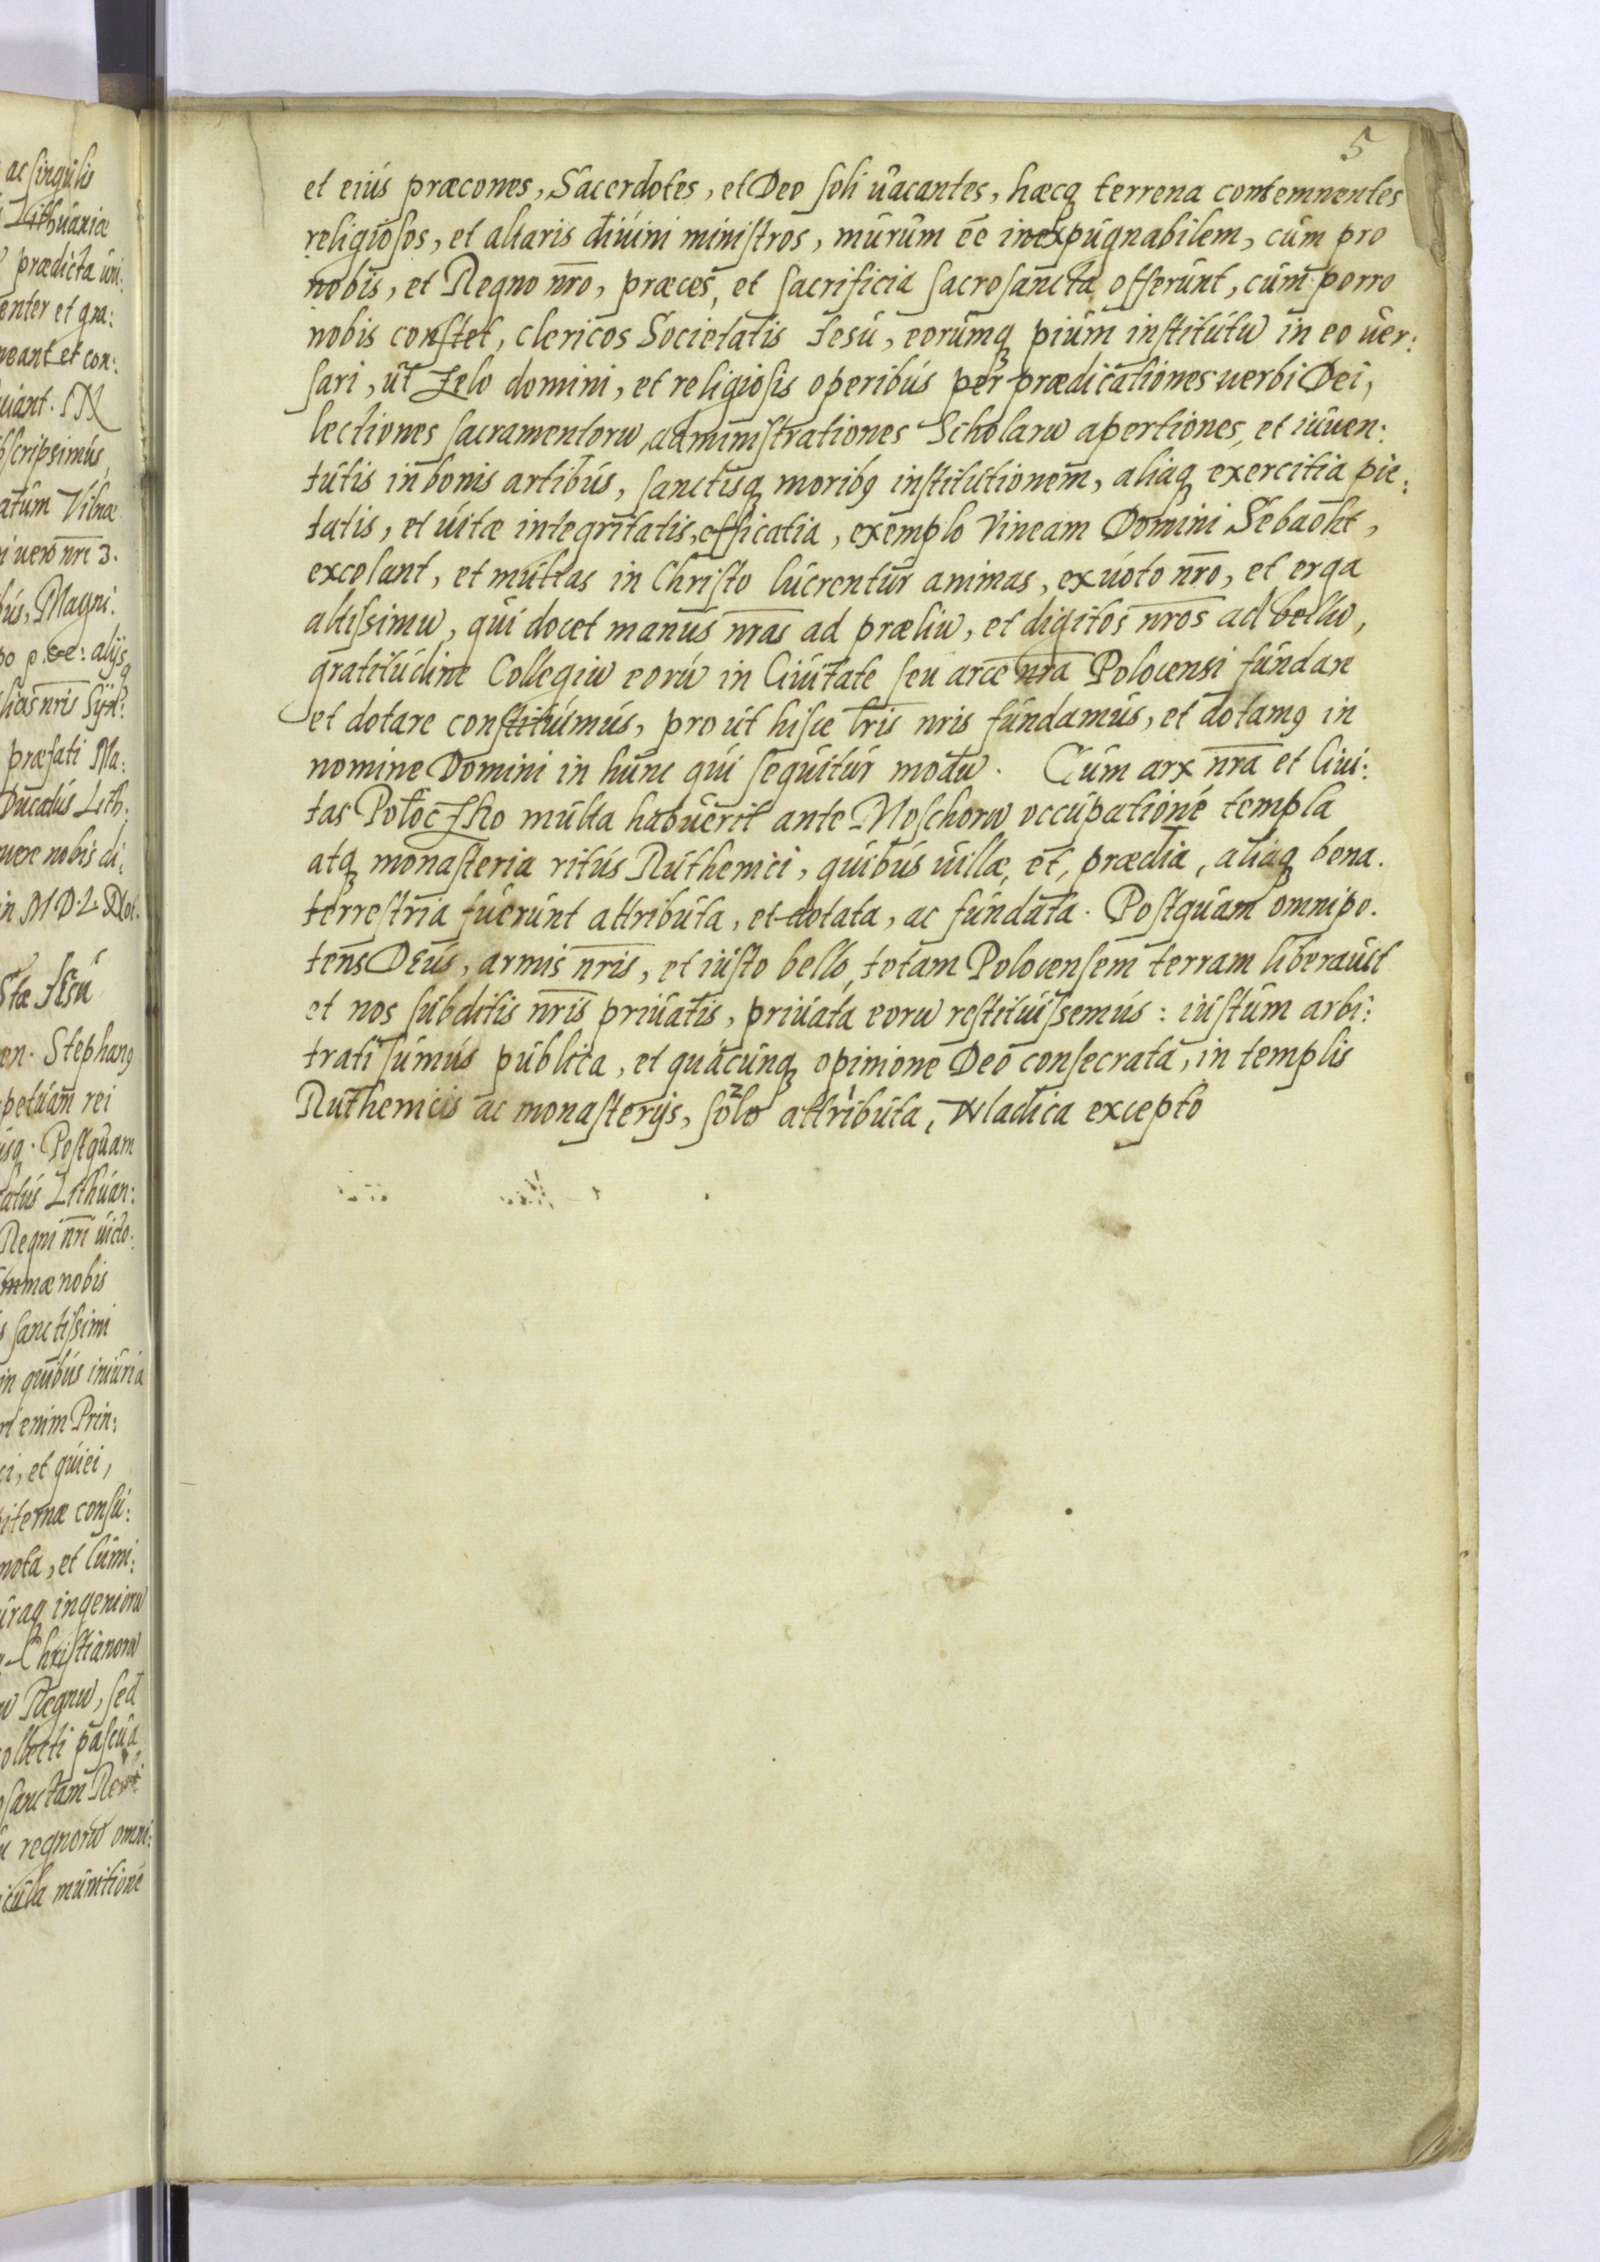 5
et eiús præcones, Sacerdotes, et Deo soli uacantes, hæcq terrena contemnentes
religiosos, et altaris diuini ministros, murum ēē inexpugnabilem, cum pro
nobis, et Regno nr̄o, præces, et sacrificia sacrosancta offerunt, cum porro
nobis constet, clericos Societatis Iesu, eorumq pium institutū in eo uer:
sari, ut Zelo domini, et religiosis operibus per prædicationes uerbi Dei,
lectiones sacramentorū administrationes Scholarū apertiones, et iuuen:
tutis in bonis artibus, sanctisq moribꝰ institutionem, aliaq exercitia pie:
tatis, et uitæ integritatis, efficatia, exemplo Vineam Domini Sebaoht,
excolant, et multas in Christo lucrentur animas, ex uoto nr̄o, et erga
altissimū, qui docet manus nr̄as ad præliū, et digitos nr̄os ad bellū,
gratitudine Collegiū eorū in Ciuitate seu arce nr̄a Polocensi fundare
et dotare constituimus, pro ut hisce lr̄is nr̄is fundamus, et dotamꝰ in
nomine Domini in hunc qui sequitur modū. Cum arx nr̄a et Ciui:
tas Poloczko multa habuerit ante Moschorū occupationē templa
atq monasteria ritus Ruthenici, quibus uillæ, et, prædia, aliaq bona
terrestria fuerunt attributa, et dotata, ac fundata. Postquam omnipo.
tens Deus, armis nr̄is, et iusto bello, totam Polocensem terram liberauit
et nos subditis nr̄is priuatis, priuata eorū restituissemus: iustum arbi:
trati sumus publica, et quacunq opinione Deo consecrata, in templis
Ruthenicis ac monasterijs, solo attributa, wladica excepto
ac singulis
Lithuaniæ
prædicta uni:
enter et gra:
neant et con:
uiant. IN
bscripsimus
atum Vilnæ
i uero nr̄i 3.
bus, Magni:
præfati Ma:
Ducatus Lith:
uere nobis di:
in M.D.L.
Stæ Iesu
en. Stephanꝰ
petuam rei
isq. Postquam
tatus Lithuan:
Regni nr̄i uicto:
nobis
sanctissimi
in quibus iniuria
ri enim Prin:
ci, et quiei,
iternæ consu:
nota, et lumi:
uraq ingeniorū
Christianorū
Regnū, sed
ollecti pascua
sanctam
regnorū omni:
icula munitionē